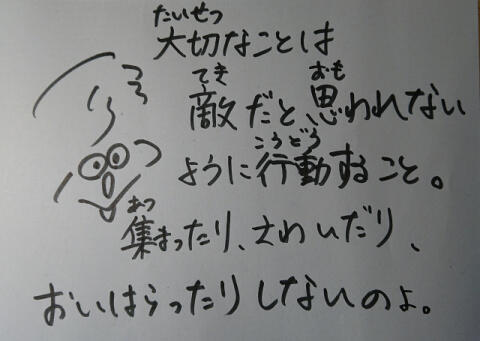 たいせつ
大切なことは
てき おも
敵だと思われない
こうどう
ように行動すること。
あつ
集まったり、さわいだり、
おいはらったりしないのよ。